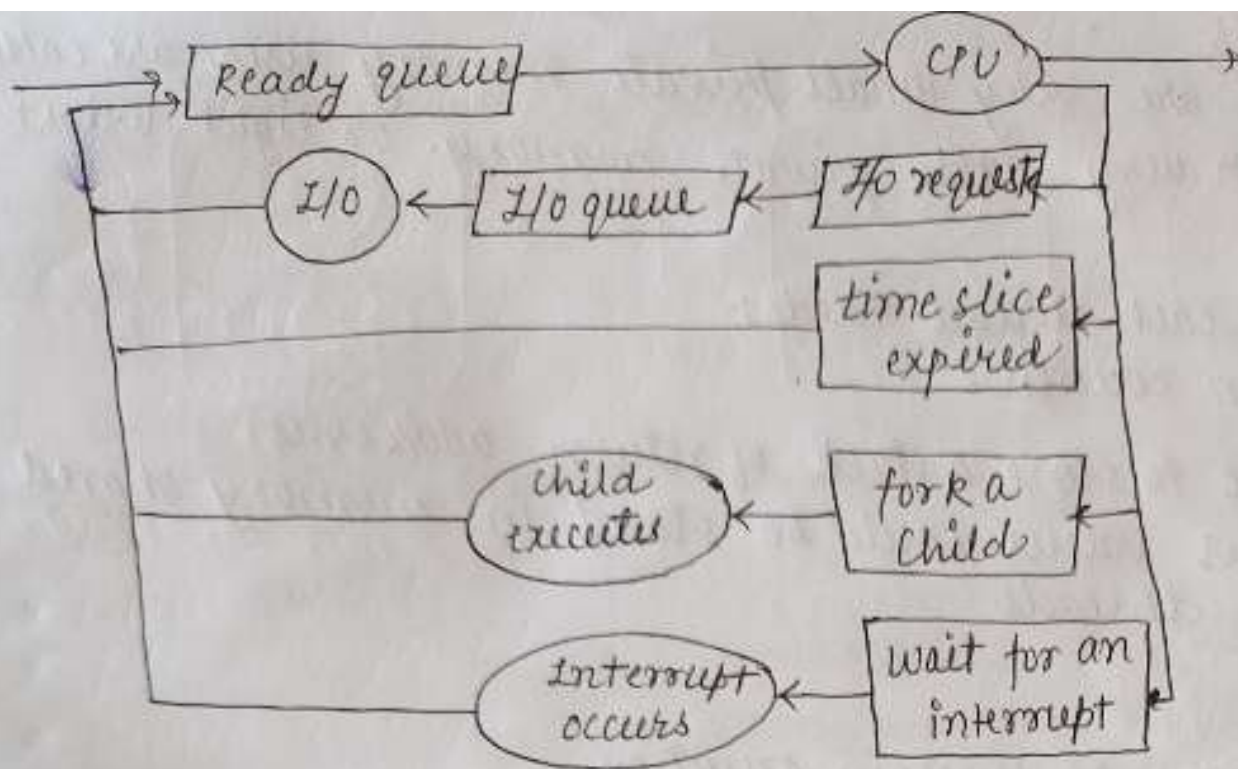 Ready queue
CPU
I/O
I/O queue
I/O request
time slice
expired
child
executes
fork a
Child
Interrupt
occurs
wait for an
interrupt